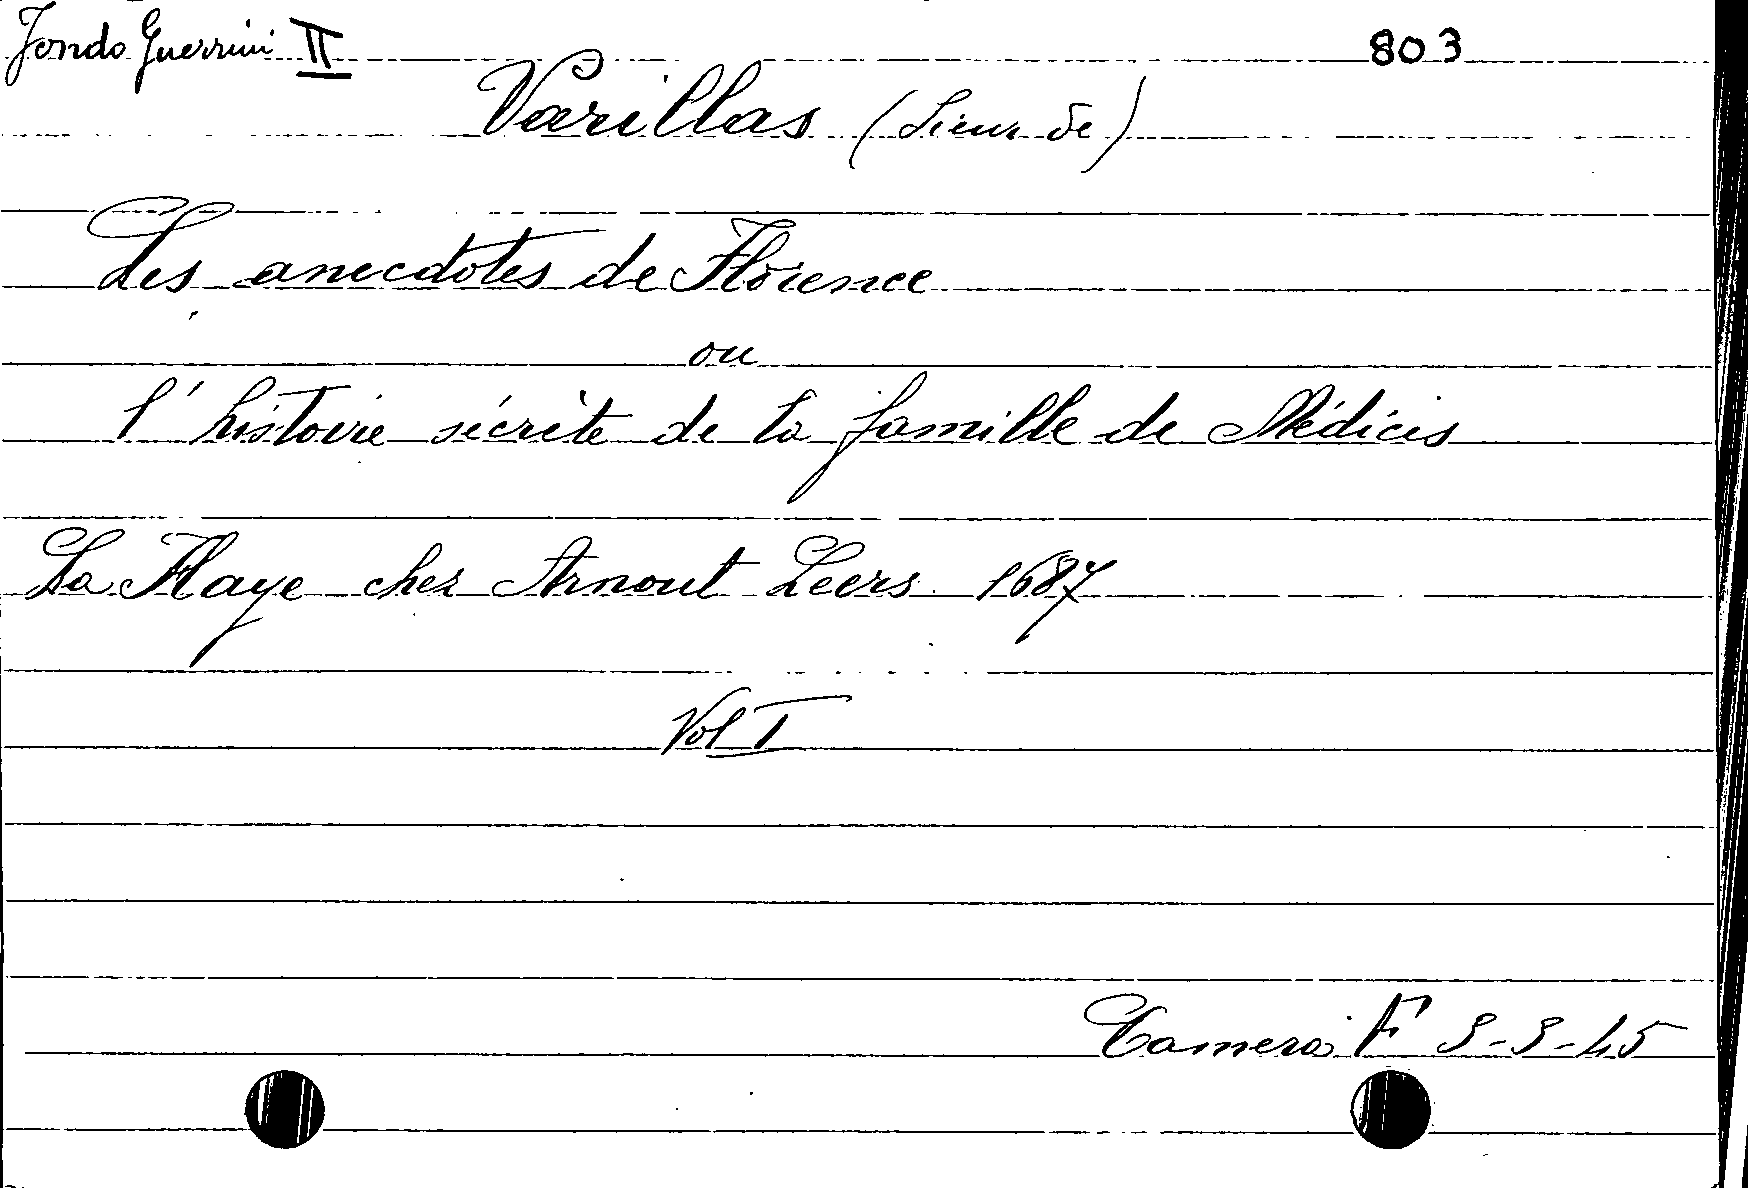 Fondo Guerrini II 803
Varillas (Sieur de)
Les anecdotes de Florence
ou
l'histoire sécrète de la famille de Médicis
La Haye chez Arnout Leers 1687
Vol I
Camera F